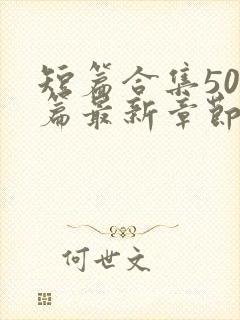 短篇合集50
篇最新章节
何世文